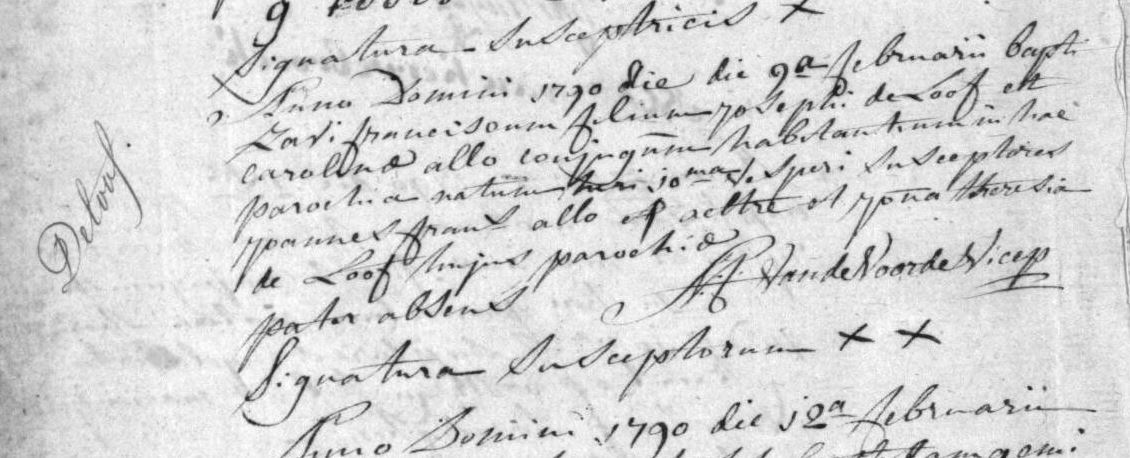 Signatura Susceptricis X
Deloof.
Anno Domini 1790 die die 9a februarii bapti
zavi franciscum filium josephi de Loof et
carolinæ allo conjugum habitantium in hac
parochia natum heri 10ma vesperi Susceptores
joannes frans allo ex aeltre et joña theresia
de Loof hujus parochiæ
pater absens VandeVoorde Vicep
Signatura Susceptorum X X
Anno Domini 1790 die 12a februarii